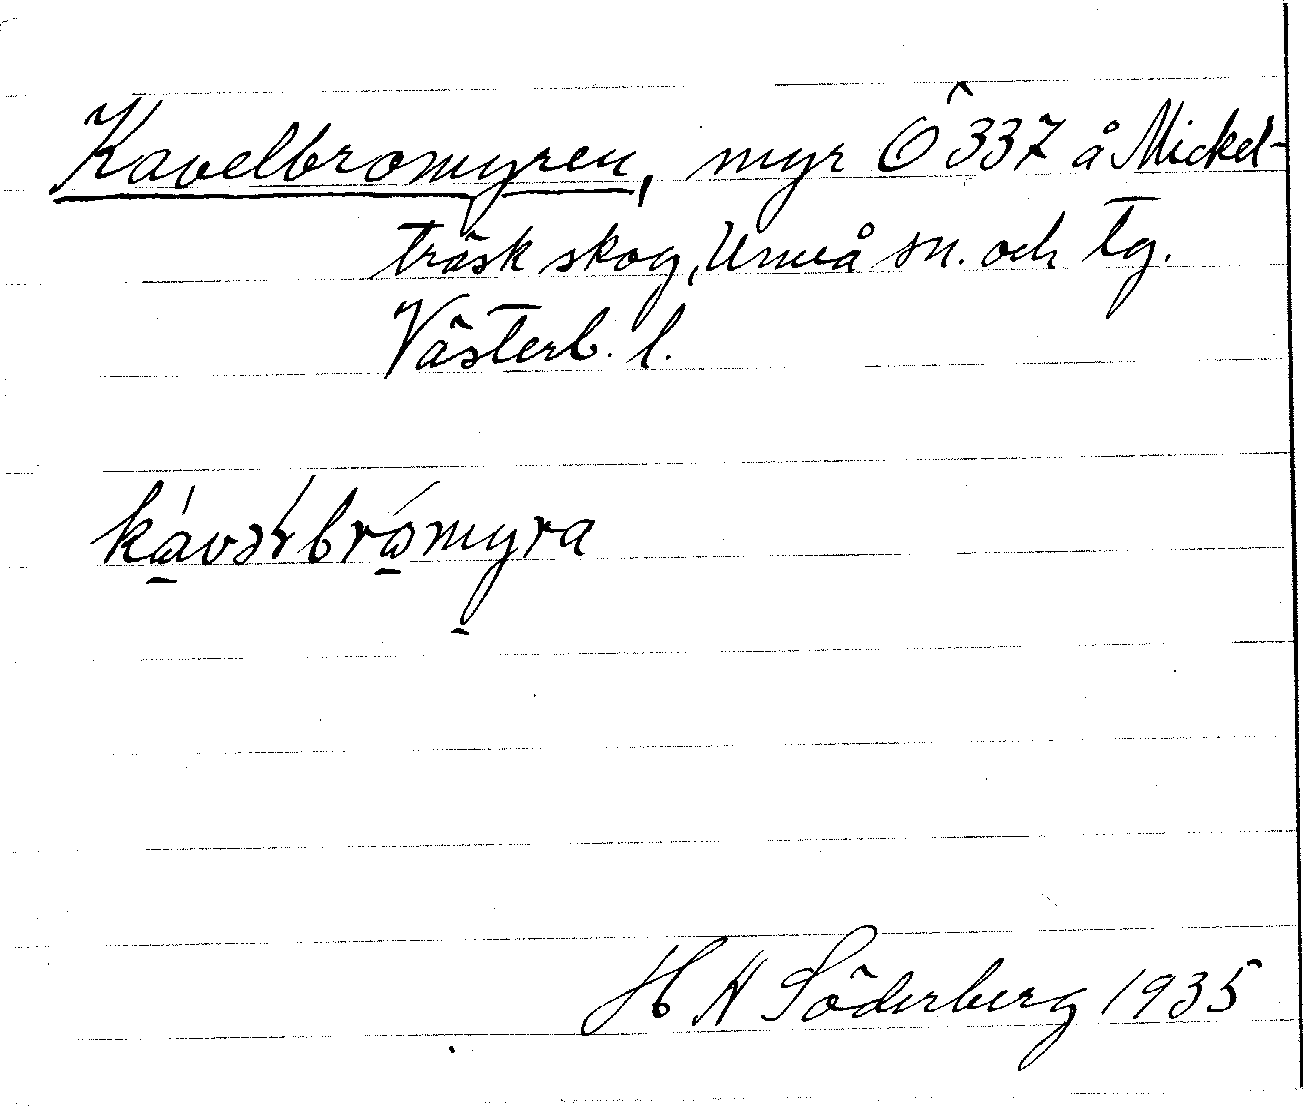 Kavelbromyren, myr Ö ^ 337 å Mickel-
träsk skog, Umeå sn. och tg.
Västerb. l.
kávəɽbrómyra
H N Söderberg 1935